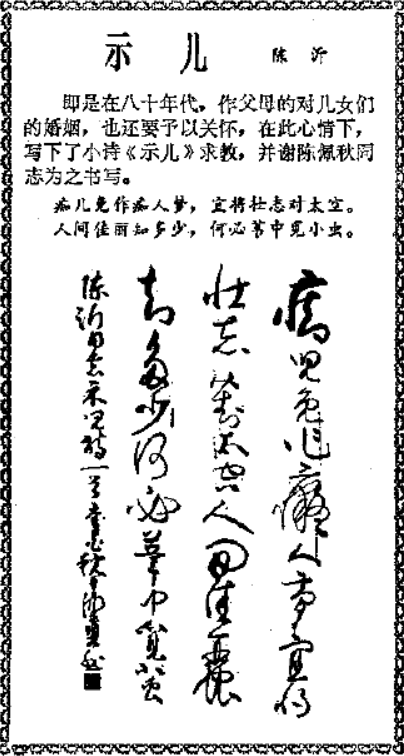 示儿 陈沂
即是在八十年代，作父母的对儿女们
的婚姻，也还要予以关怀，在此心情下，
写下了小诗《示儿》求教，并谢陈佩秋同
志为之书写。
痴儿免作痴人梦，宜将壮志对太空。
人间佳丽知多少，何必茅中觅小虫。
痴儿免作痴人梦宜将
壮志对太空人间佳丽
知多少何必茅中觅小虫
陈沂同志示儿诗一首